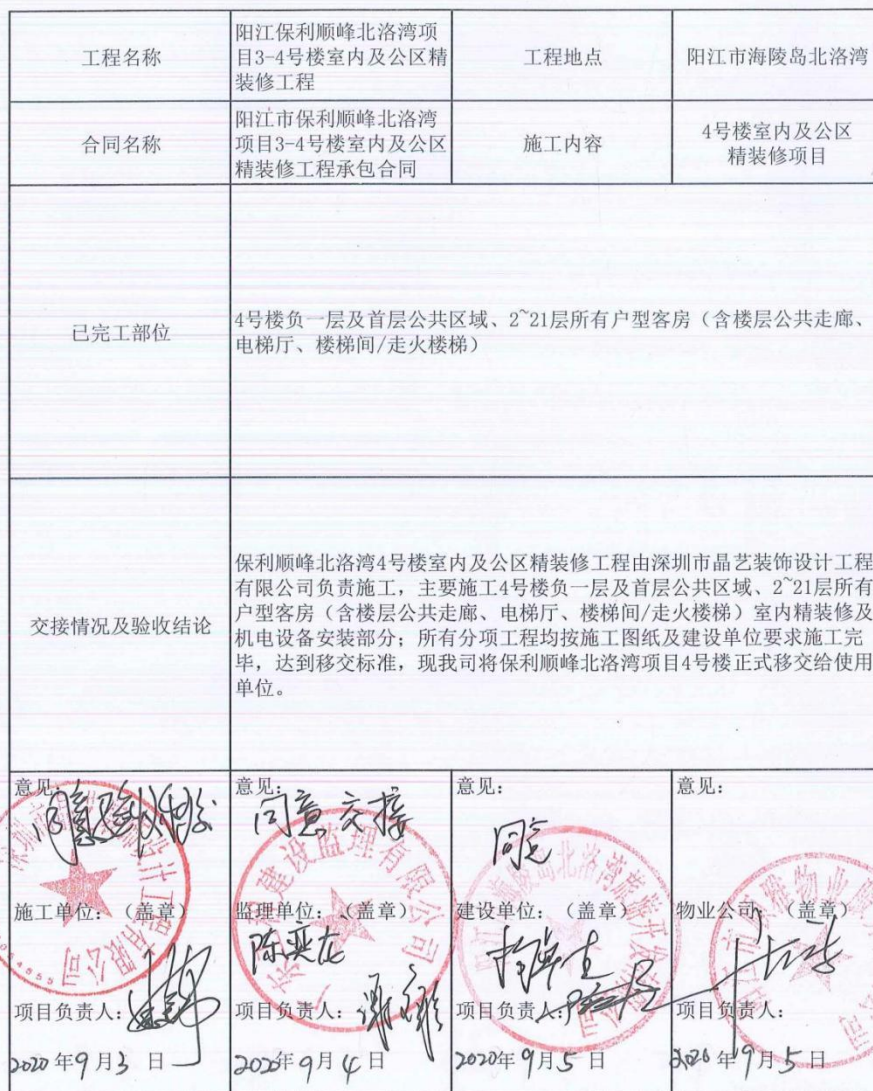 工程名称
阳江保利顺峰北洛湾项
目3-4号楼室内及公区精
装修工程
工程地点
阳江市海陵岛北洛湾
合同名称
阳江市保利顺峰北洛湾
项目3-4号楼室内及公区
精装修工程承包合同
施工内容
4号楼室内及公区
精装修项目
已完工部位
4号楼负一层及首层公共区域、2~21层所有户型客房（含楼层公共走廊、
电梯厅、楼梯间/走火楼梯）
交接情况及验收结论
保利顺峰北洛湾4号楼室内及公区精装修工程由深圳市晶艺装饰设计工程
有限公司负责施工，主要施工4号楼负一层及首层公共区域、2~21层所有
户型客房（含楼层公共走廊、电梯厅、楼梯间/走火楼梯）室内精装修及
机电设备安装部分；所有分项工程均按施工图纸及建设单位要求施工完
毕，达到移交标准，现我司将保利顺峰北洛湾项目4号楼正式移交给使用
单位。
意见：
同意
施工单位：（盖章）
项目负责人：
2020年9月3日
意见：
同意交接
建设监理有限公司
监理单位：（盖章）
陈奕龙
项目负责人：
2020年9月4日
意见：
同意
海陵岛北洛湾旅游开发有限公司
建设单位：（盖章）
项目负责人：
2020年9月5日
意见：
物业
物业公司：（盖章）
项目负责人：
2020年9月5日